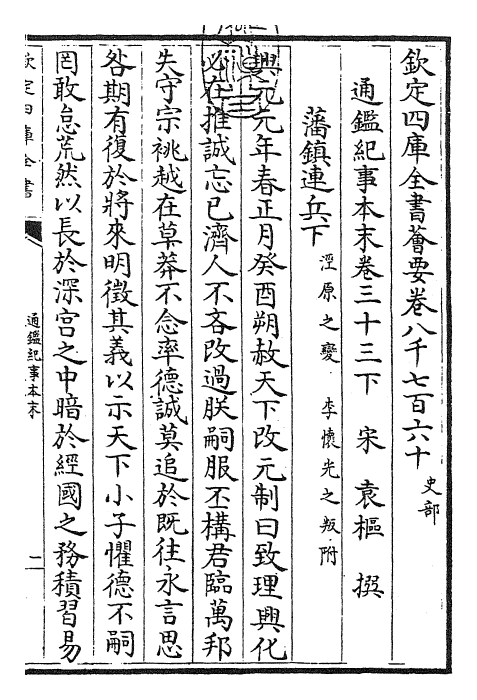 欽定四庫全書薈要卷八千七百六十
史部
通鑑紀事本末卷三十三下
宋 袁樞 撰
藩鎮連兵下
涇原之變 李懷光之叛附
興元元年春正月癸酉朔赦天下改元制曰致理興化
必在推誠忘已濟人不吝改過朕嗣服丕構君臨萬邦
失守宗祧越在草莽不念率德誠莫追於既往永言思
咎期有復於將來明徵其義以示天下小子懼德不嗣
罔敢怠荒然以長於深宮之中暗於經國之務積習易
欽定四庫全書
通鑑紀事本末
二